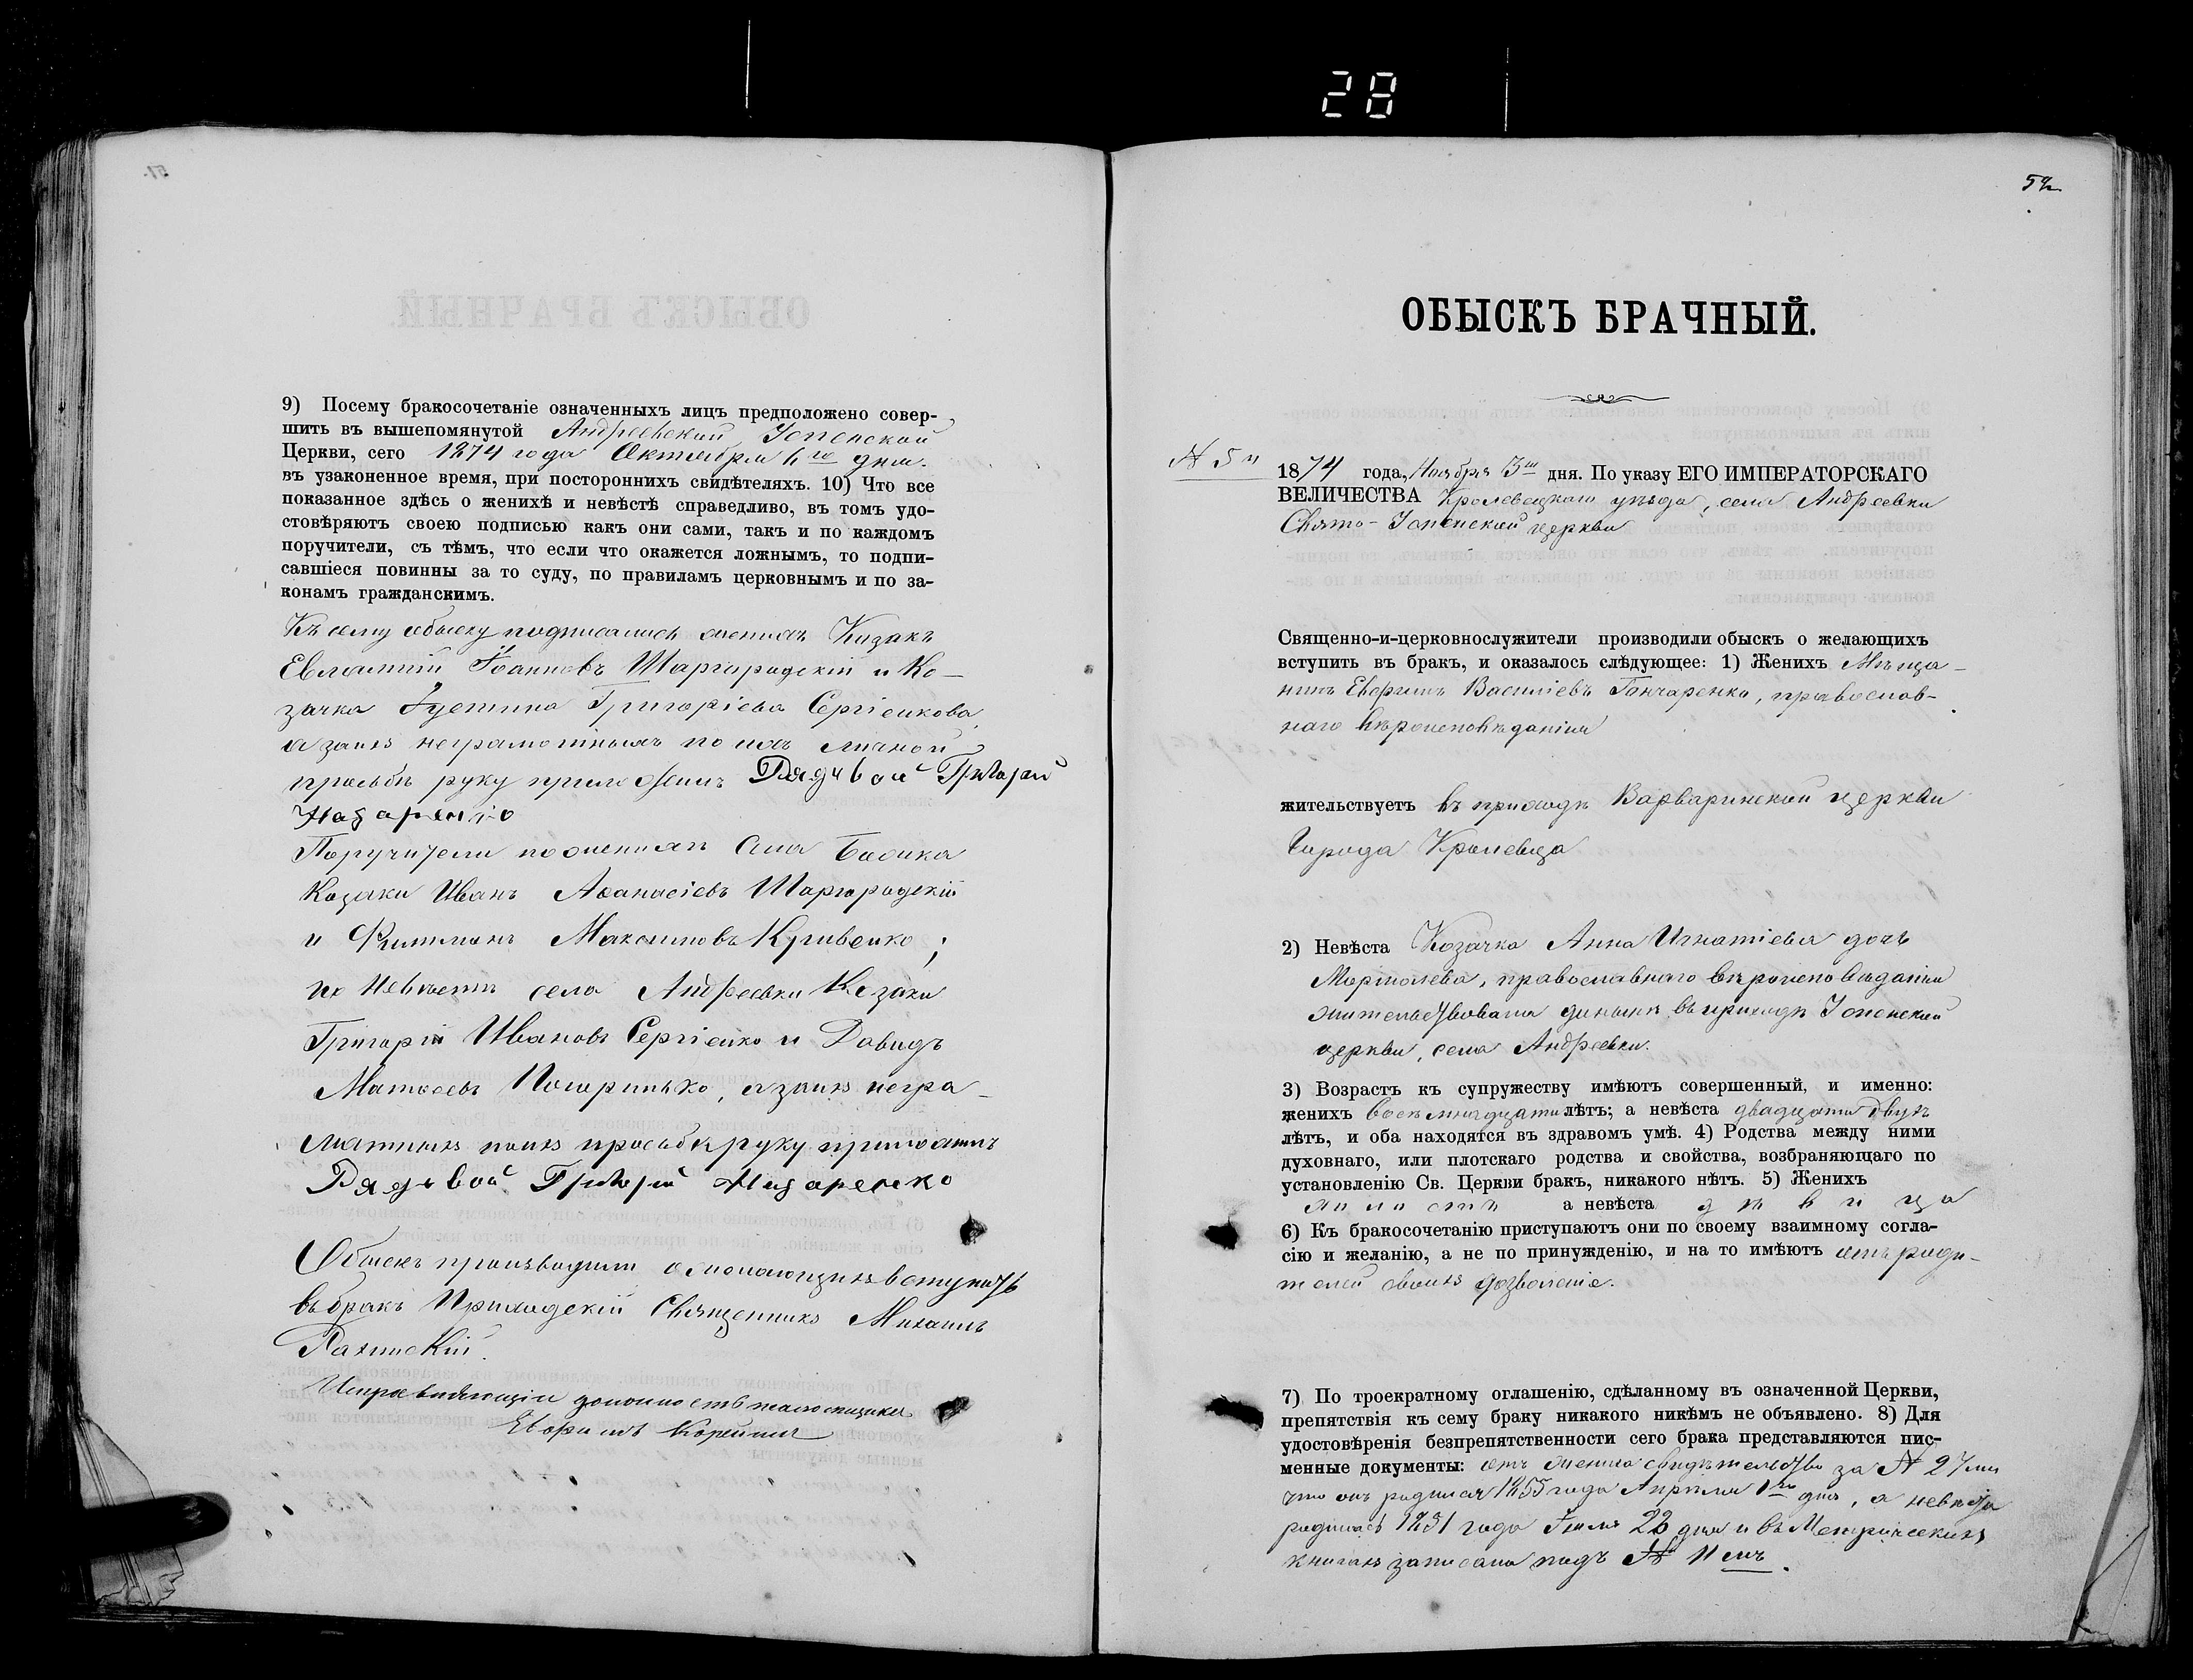 28
51.
9) Посему бракосочетаніе означенныхъ лицъ предположено совер-
шить въ вышепомянутой Андреевской Успенской
Церкви, сего 1874 года Октября 6го дня.
въ узаконенное время, при постороннихъ свидѣтеляхъ. 10) Что все
показанное здѣсь о женихѣ и невѣстѣ справедливо, въ томъ удо-
стовѣряютъ своею подписью какъ они сами, такъ и по каждомъ
поручители, съ тѣмъ, что если что окажется ложнымъ, то подпи-
савшіеся повинны за то суду, по правиламъ церковнымъ и по за-
конамъ гражданскимъ.
Къ сему обыску подписались женихъ Козакъ
Евлампій Іоанновъ Шаргородскій и Ко-
зачка Іустина Григоріева Сергіенкова,
а за ихъ неграмотныхъ по ихъ личной
просьбѣ руку приложилъ Рядивой Григорій
Назаренко
Поручители по женихѣ села
Козаки Иванъ Аѳанасіевъ Шаргородскій
и Филимонъ Максимовъ Кривенко;
по Невѣстѣ села Андреевки Козаки
Григорій Ивановъ Сергіенко и Давидъ
Матвѣевъ а за ихъ негра-
мотныхъ по ихъ просьбѣ руку приложилъ
Рядивой Григорій Назаренко
Обыскъ производили о желающихъ вступить
въ бракъ Приходскій Священникъ Михаилъ
Исправляющій должность псаломщика
Ефимъ
52
ОБЫСКЪ БРАЧНЫЙ.
№ 5й
1874 года, Ноября 3го дня. По указу ЕГО ИМПЕРАТОРСКАГО
ВЕЛИЧЕСТВА Кролевецкаго уѣзда, села Андреевки
Свято-Успенской церкви
Священно-и-церковнослужители производили обыскъ о желающихъ
вступить въ бракъ, и оказалось слѣдующее: 1) Женихъ Мѣща-
нинъ Василіевъ Гончаренко, православ-
наго вѣроисповѣданія
жительствуетъ въ приходѣ Варваринской церкви
города Кролевца
2) Невѣста Козачка Анна Игнатіева дочь
православнаго вѣроисповѣданія
жительствовала донынѣ въ приходѣ Успенской
церкви, села Андреевки.
3) Возрастъ къ супружеству имѣютъ совершенный, и именно:
женихъ восемнадцати лѣтъ; а невѣста двадцати двухъ
лѣтъ, и оба находятся въ здравомъ умѣ. 4) Родства между ними
духовнаго, или плотскаго родства и свойства, возбраняющаго по
установленію Св. Церкви бракъ, никакого нѣтъ. 5) Женихъ
холостъ а невѣста дѣвица
6) Къ бракосочетанію приступаютъ они по своему взаимному согла-
сію и желанію, а не по принужденію, и на то имѣютъ отъ роди-
телей своихъ дозволеніе.
7) По троекратному оглашенію, сдѣланному въ означенной Церкви,
препятствія къ сему браку никакого никѣмъ не объявлено. 8) Для
удостовѣренія безпрепятственности сего брака представляются пис-
менные документы: отъ жениха свидѣтельство за № 27мъ
что онъ родился 1855 года Апрѣля 1го дня, а невѣста
родилась 1851 года Іюля 23 дня и въ Метрическихъ
книгахъ записана подъ № 11мъ.